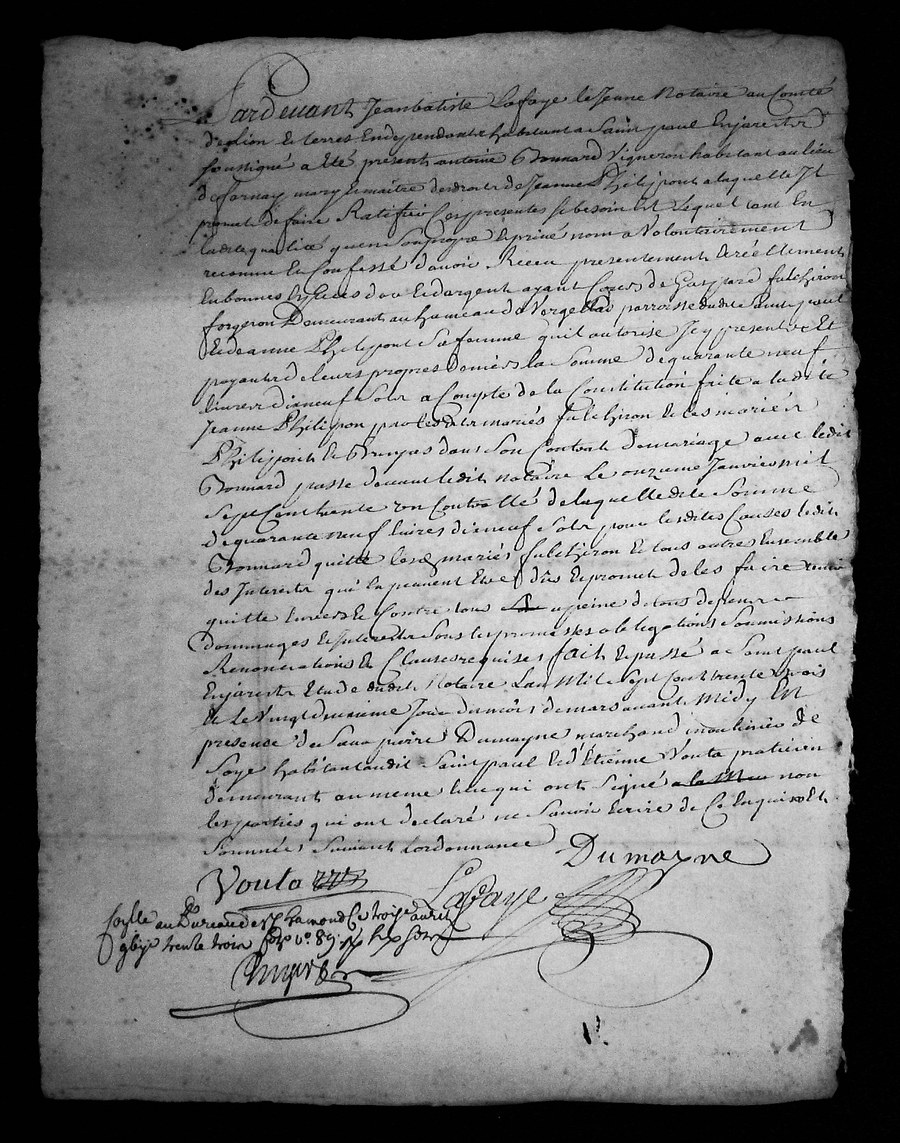 Pardevant Jeanbatiste Lafaye le Jeune Notaire au Comté
de Lion Et terres En dependantes habitant a Saint paul Enjarestz
soussigné a Eté present antoine Bonnard Vigneron habitant au lieu
de Fornay mary Et maitre des droits de Jeanne Philipont a laquelle Jl
promet de faire Ratiffier Ces presentes sy besoin Est Lequel tant En
ladite qualité quen Son propre Et privé nom a Volontairement
reconnu Et Confessé davoir Receu presentement Et réellement
En bonnes Especes dor Et dargent ayant Cours de Gaspard fulchiron
forgeron Demeurant au hameau de Vergellas parroisse dudit Saint paul
Et Jeanne Philipont Sa femme quil autorise Jcy presents Et
payants de leurs propres deniers la Somme de quarante neuf
livres dixneuf Sols a Compte de la Constitution faite a la dite
Jeanne Philipon par lesdits mariés fulchiron Et les mariés
Philipont Et dans Son Contrat de mariage avec ledit
Bonnard passé devant ledit notaire Le onzieme Janvier mil
Sept Cent trente un Controllé de laquelle dite Somme
de quarante neuf livres dixneuf Sols pour lesdites Causes ledit
Bonnard quitte lesd mariés fulchiron Et tous autres Ensemble
des Interests qui luy peuvent Etre dûs Et promet de les faire tenir
quitte Envers Et Contre tous a peine de tous depens
dommages Et Interests Sous les promesses obligations Soumissions
Renonciations Et Clauses requises fait Et passé a Saint paul
Enjarestz Etude dudit Notaire Lan Mil Sept Cent trente trois
Et Le Vingt deuxieme Jour du mois de mars avant Midy En
presence de Sieur pierre Dumayne marchand moulinier de
Soye habitant audit Saint paul Et d'Etienne Vouta praticien
demeurant au meme lieu qui ont Signé a la Min non
les parties qui ont declaré ne Savoir Ecrire de Ce Enquis Et
Sommés Suivant Lordonnance
Dumayne
Vouta
Lafaye
au Bureau de St Chamond Ce trois avril
trente trois fo. 89